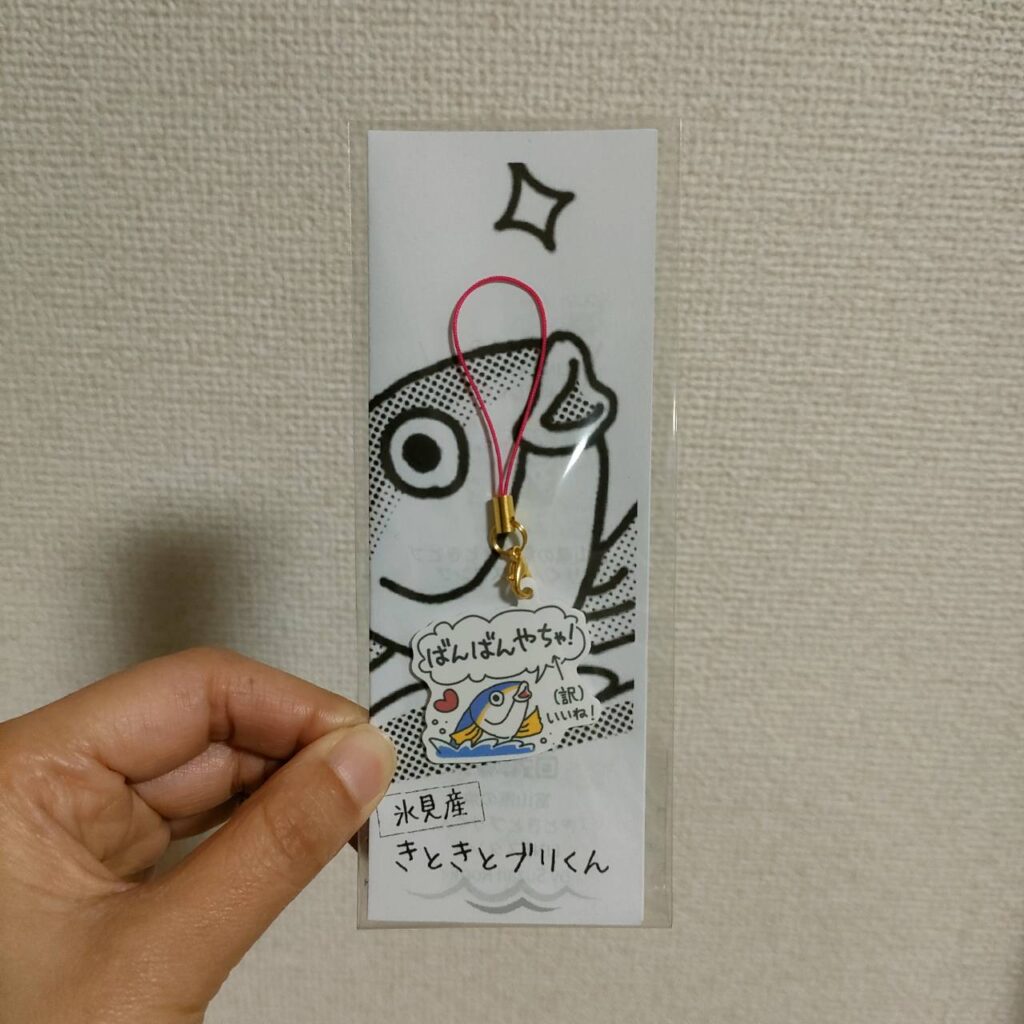 ばんばんやちゃ!
(訳)
いいね!
氷見産
きときとブリくん